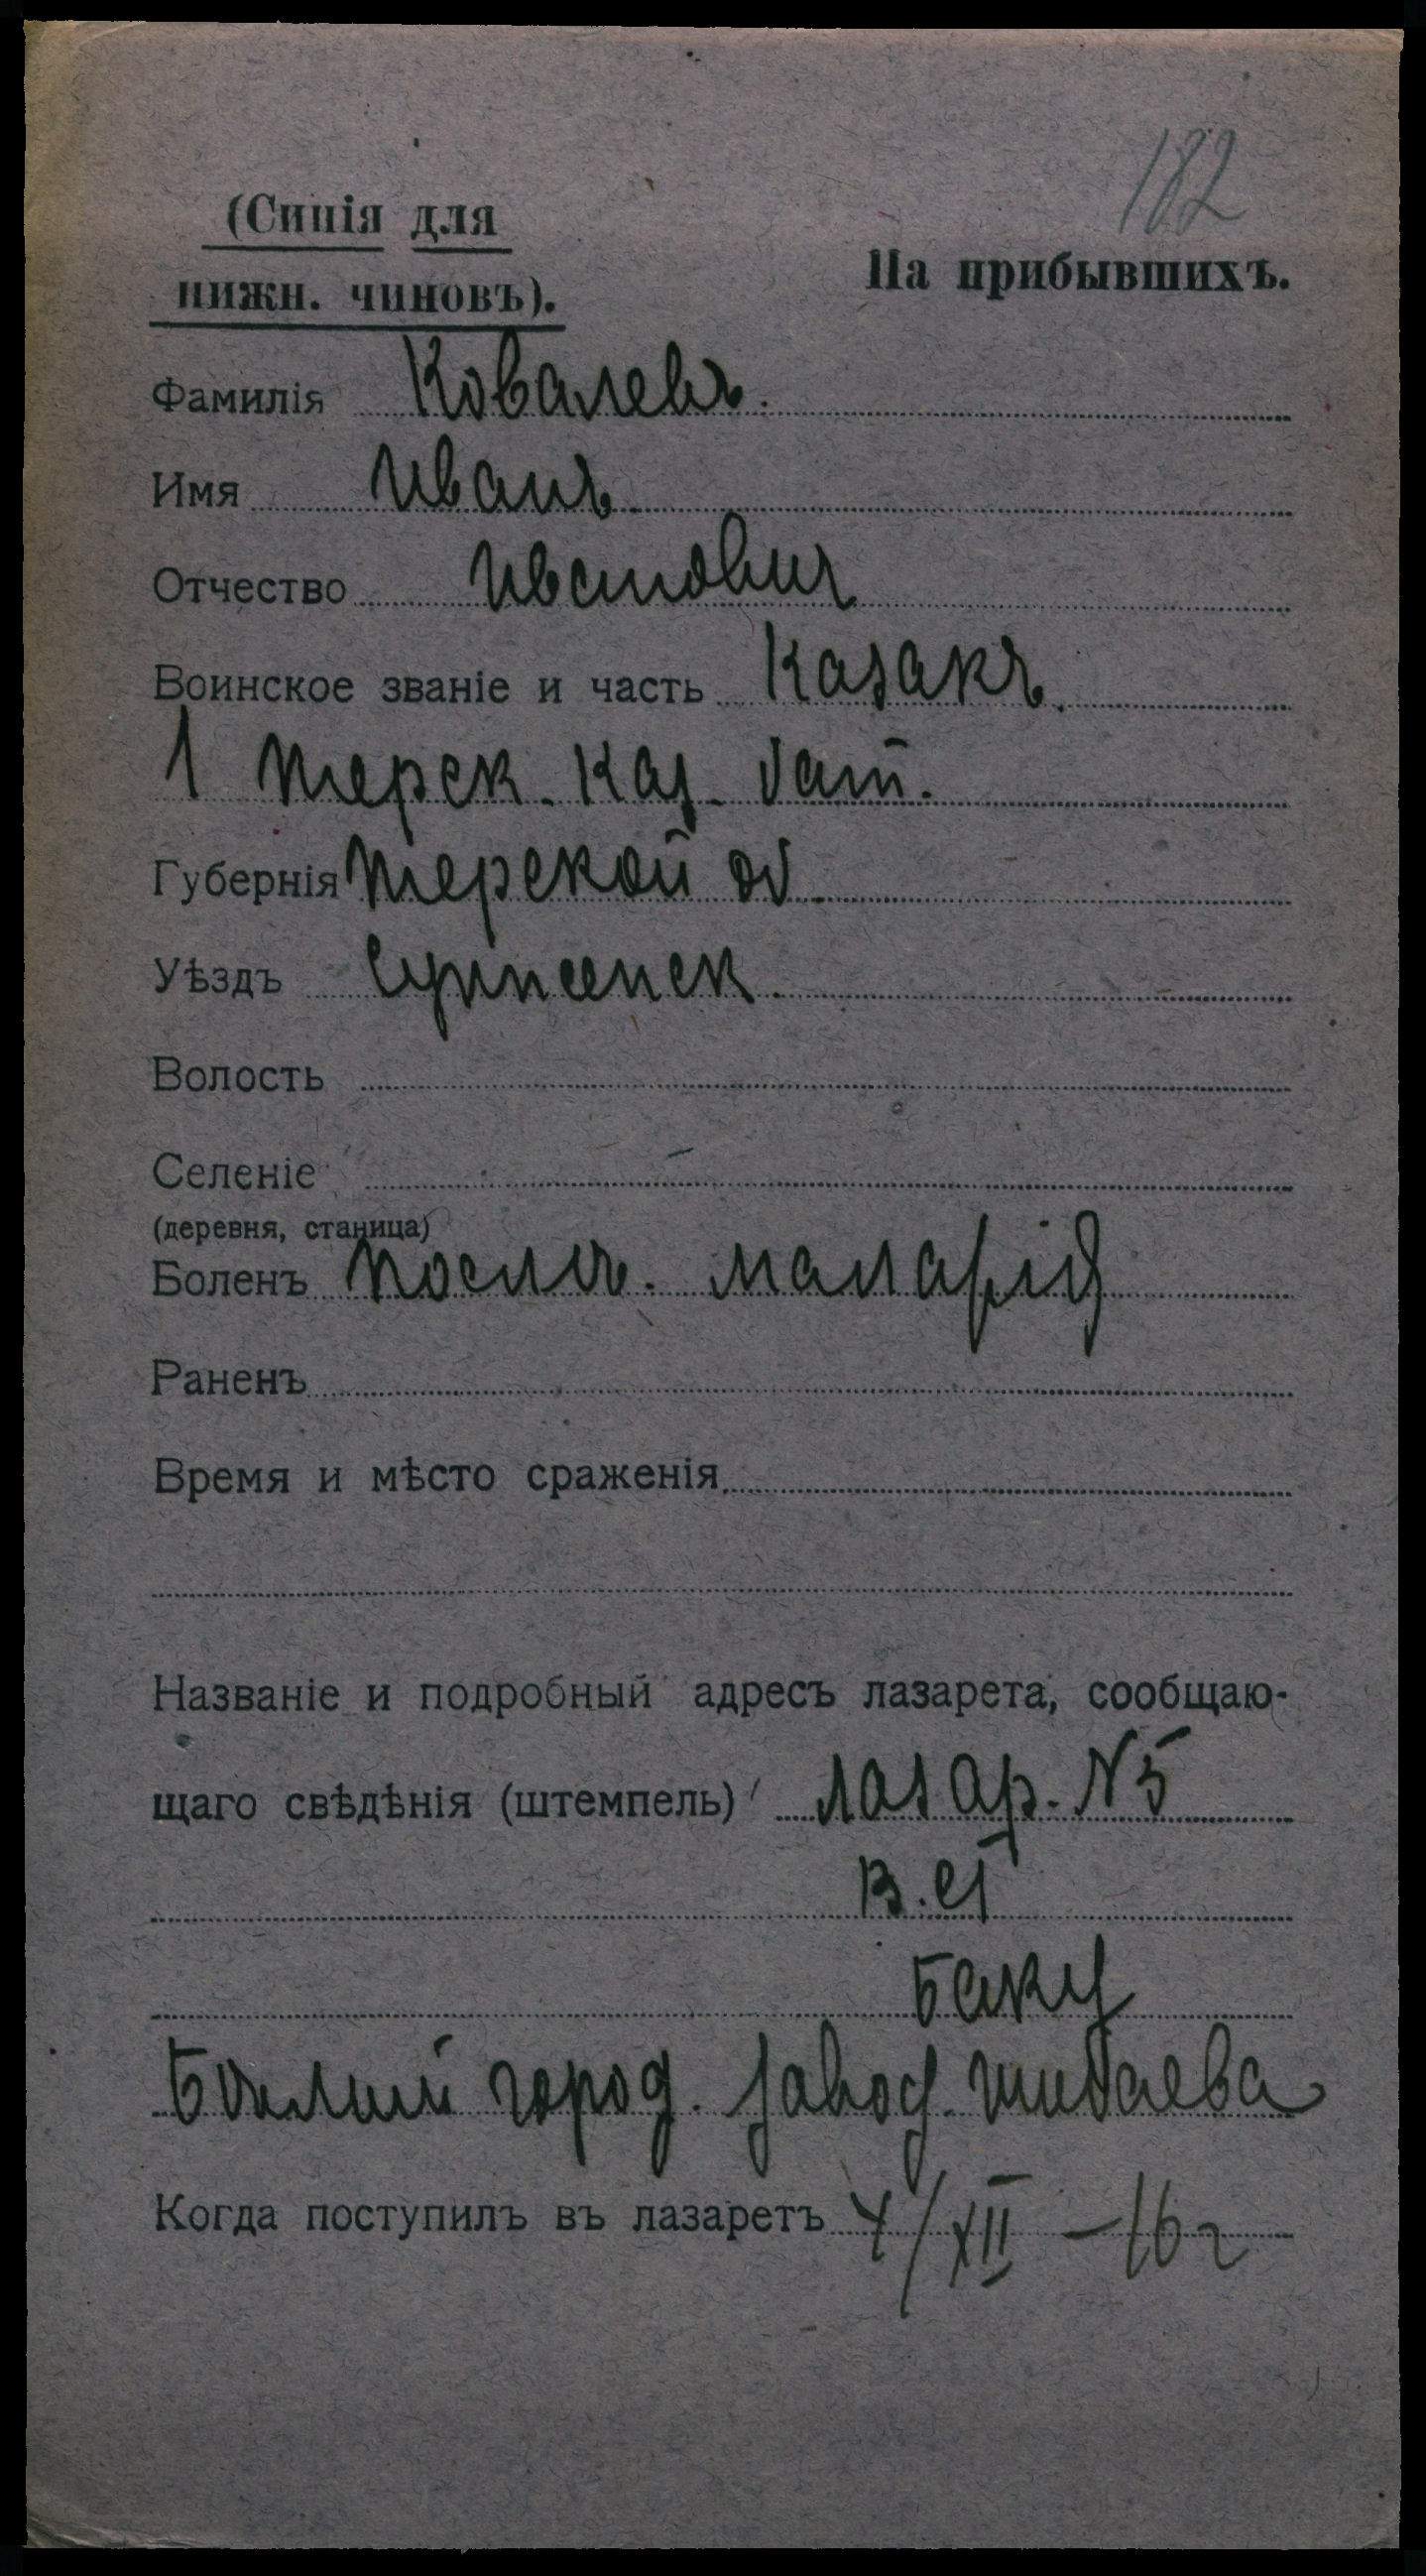 182
(Синія для
нижн. чиновъ).
На прибывшихъ.
Фамилія Ковалевъ.
Имя Иванъ
Отчество Иванович
Воинское званіе и часть Казакъ
1 Терск. Каз. бат.
Губернія Терской об.
Уѣздъ
Волость
Селеніе
(деревня, станица)
Боленъ послѣ. малярія
Раненъ
Время и мѣсто сраженія
Названіе и подробный адресъ лазарета, сообщаю-
щаго свѣдѣнія (штемпель) Лазар. №5
В.С.Г
Баку
город. завод. Шибаева
Когда поступилъ въ лазаретъ 4/XII – 16 г